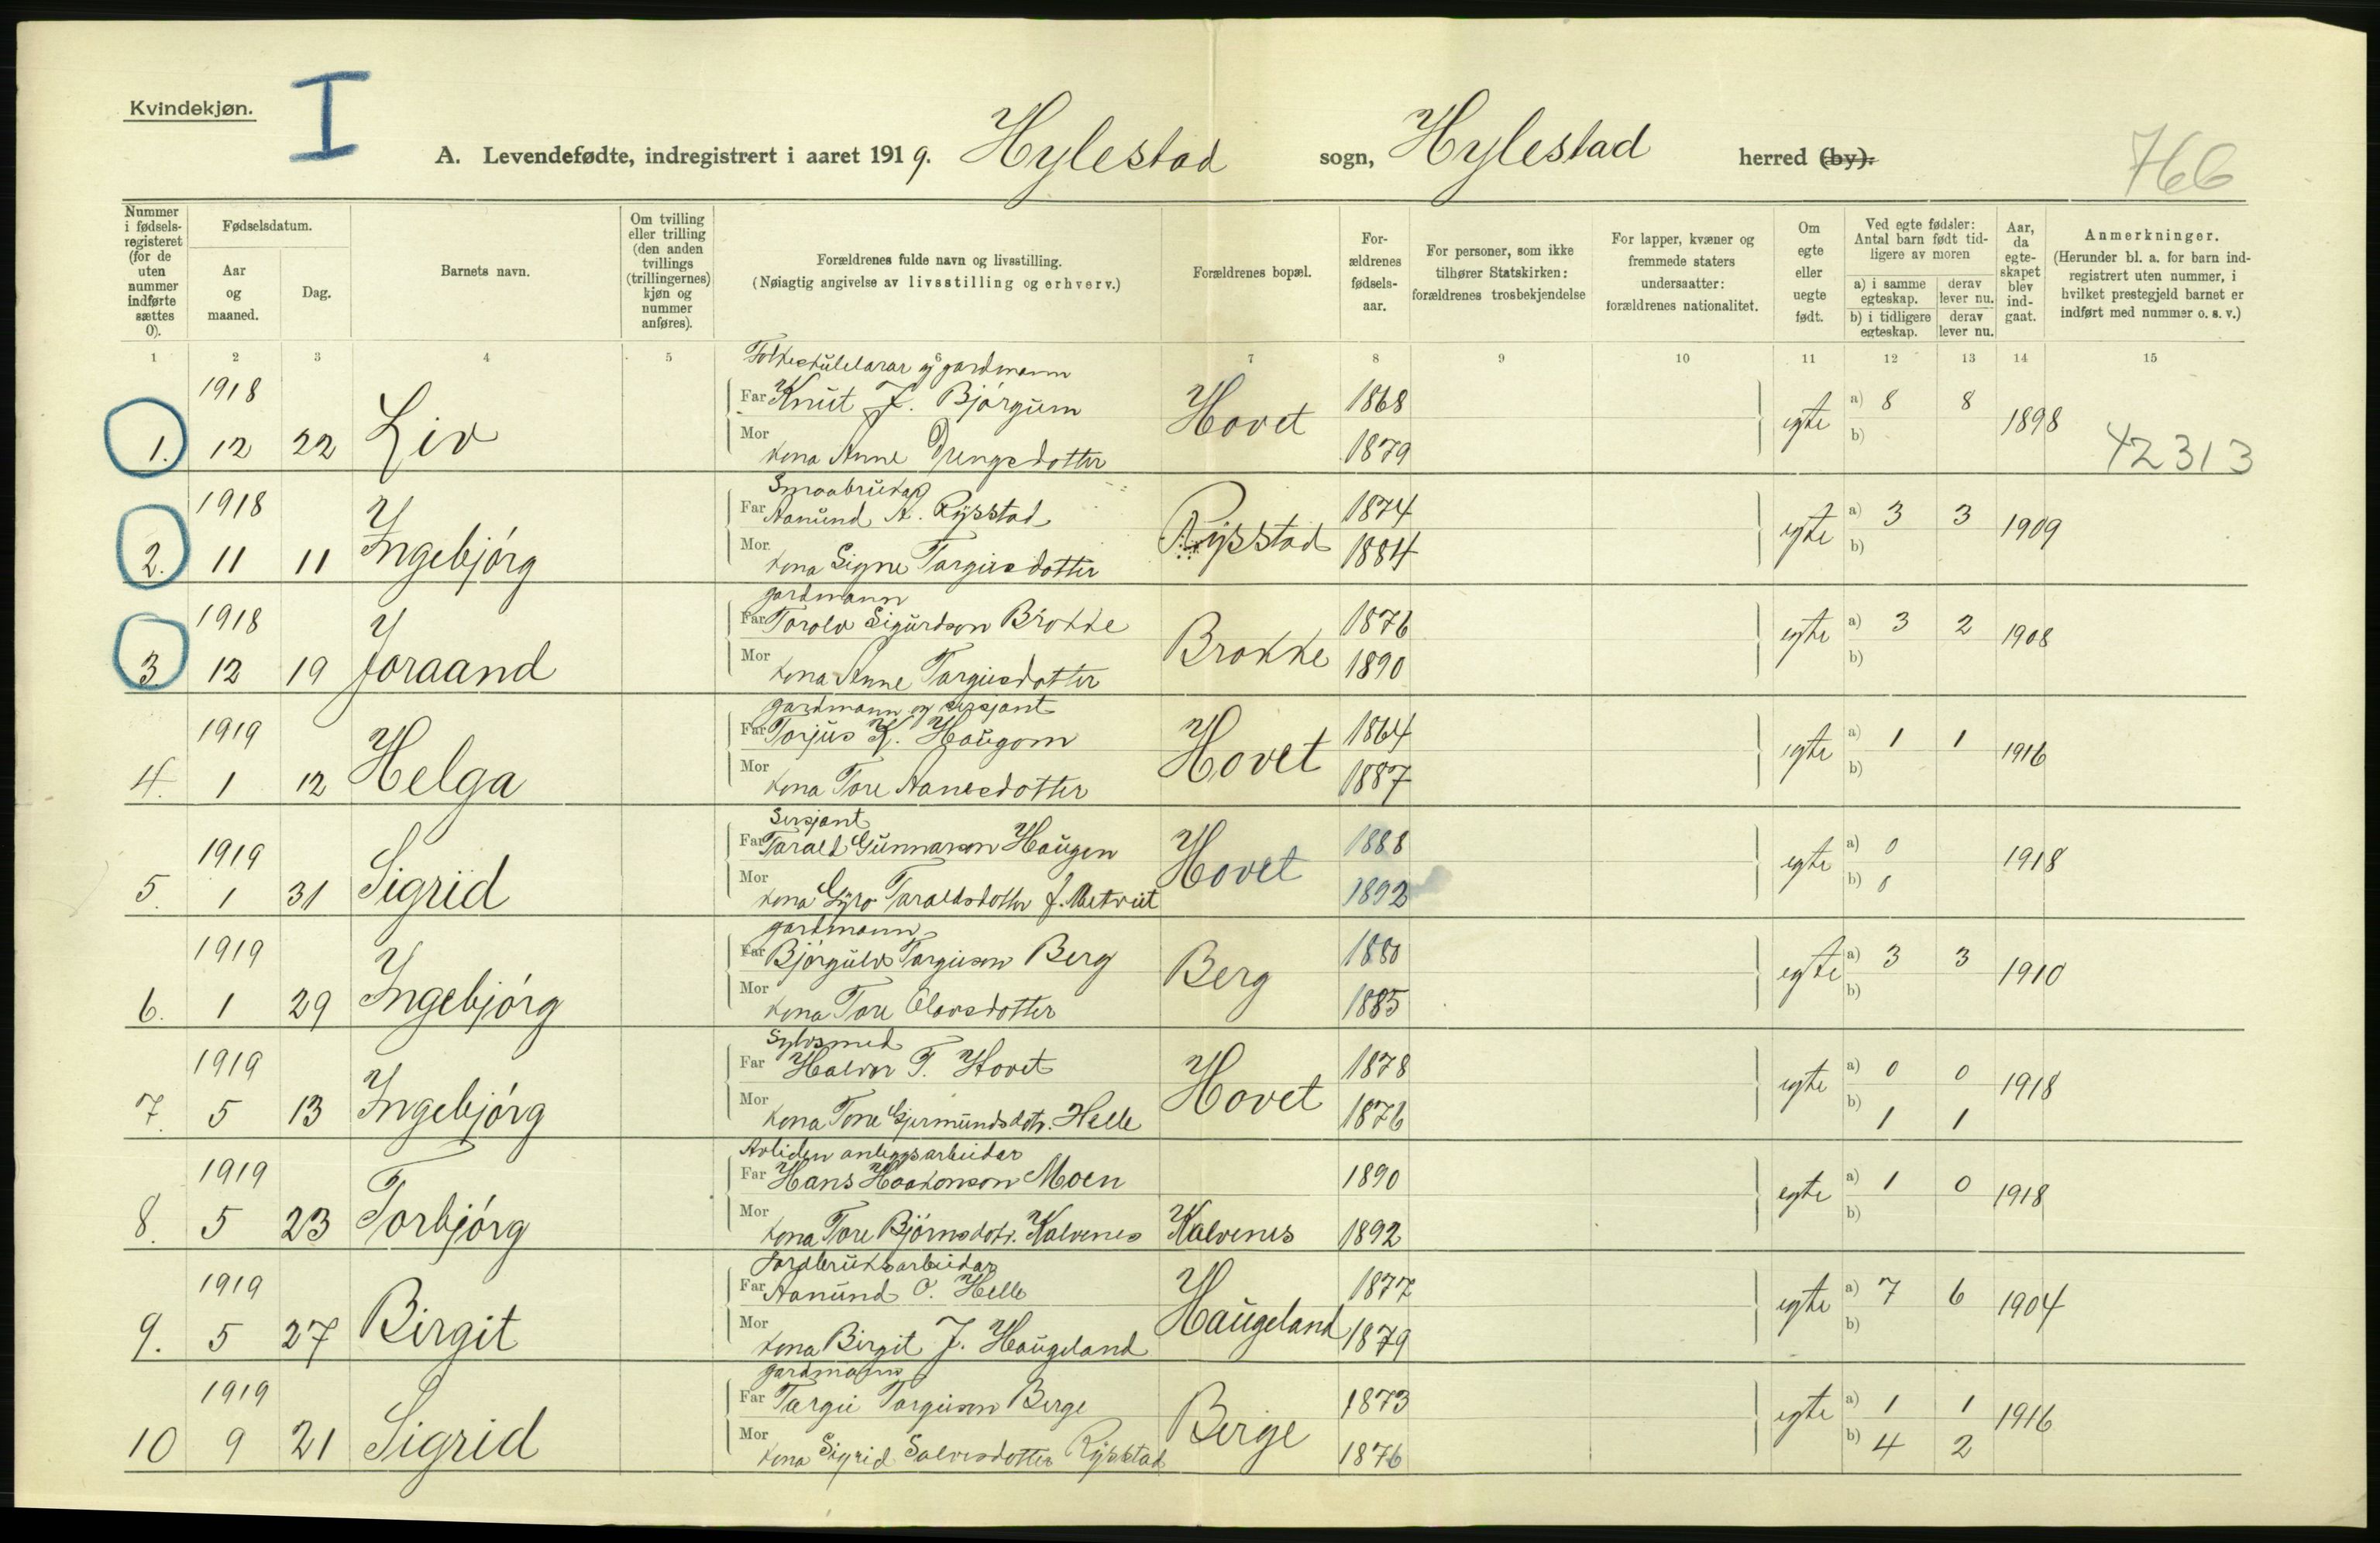 Kvindekjøn.
I
A. Levendefødte, indregistrert i aaret 1919. Hylestad sogn, Hylestad herred (by).
766
Nummer i fødselsregisteret (for de uten nummer indførte sættes 0).
Fødselsdatum.
Aar og maaned.
Dag.
Barnets navn.
Om tvilling eller trilling (den anden tvillings (trillingernes) kjøn og nummer anføres).
Forældrenes fulde navn og livsstilling.
(Nøiagtig angivelse av livsstilling og erhverv.)
Forældrenes bopæl.
Forældrenes fødselsaar.
For personer, som ikke tilhører Statskirken: forældrenes trosbekjendelse
For lapper, kvæner og fremmede staters undersaatter: forældrenes nationalitet.
Om egte eller uegte født.
Ved egte fødsler: Antal barn født tidligere av moren
a) i samme egteskap. derav lever nu.
b) i tidligere egteskap. derav lever nu.
Aar, da egteskapet blev indgaat.
Anmerkninger.
(Herunder bl. a. for barn indregistrert uten nummer, i hvilket prestegjeld barnet er indført med nummer o. s. v.)
1 2 3 4 5 6 7 8 9 10 11 12 13 14 15
Folkeskulelærar og gardmann
1918 Far Knut J. Bjórgum Hovet 1868 egte a) 8 8 1898
1. 12 22 Liv Mor kona Anne Drengsdotter 1879 b) 42313
Smaabrukar
1918 Far Aanund A. Rysstad Rysstad 1874 egte a) 3 3 1909
2. 11 11 Ingebjórg Mor kona Signe Targiesdotter 1884 b)
gardmann
1918 Far Torolv Sigurdson Brokke Brokke 1876 egte a) 3 2 1908
3 12 19 Joraand Mor kona Anne Targiesdotter 1890 b)
gardmann og sersjant
1919 Far Torjus K. Haugom Hovet 1864 egte a) 1 1 1916
4. 1 12 Helga Mor kona Tore Aanesdotter 1887 b)
Sersjant
1919 Far Tarald Gunnarson Haugen Hovet 1888 egte a) 0 1918
5. 1 31 Sigrid Mor kona Gyro Taraldsdotter f. Aletveit 1892 b) 0
gardmann
1919 Far Bjórgulv Targieson Berg Berg 1880 egte a) 3 3 1910
6. 1 29 Ingebjórg Mor kona Tore Olavsdotter 1885 b)
Sylvsmed
1919 Far Halvor T. Hovet Hovet 1878 egte a) 0 0 1918
7. 5 13 Ingebjórg Mor kona Tone Gjermundsdotr. Helle 1876 b) 1 1
Avliden anleggsarbeidar
1919 Far Hans Haakonson Moen 1890 egte a) 1 0 1918
8. 5 23 Torbjórg Mor kona Tore Bjórnsdotr. Kalvenes Kalvenes 1892 b)
Jordbruksarbeidar
1919 Far Aanund O. Helle Haugeland 1877 egte a) 7 6 1904
9. 5 27 Birgit Mor kona Birgit J. Haugeland 1879 b)
gardmann
1919 Far Targie Targieson Berge Berge 1873 egte a) 1 1 1916
10 9 21 Sigrid Mor kona Sigrid Salvesdotter Rysstad 1876 b) 4 2